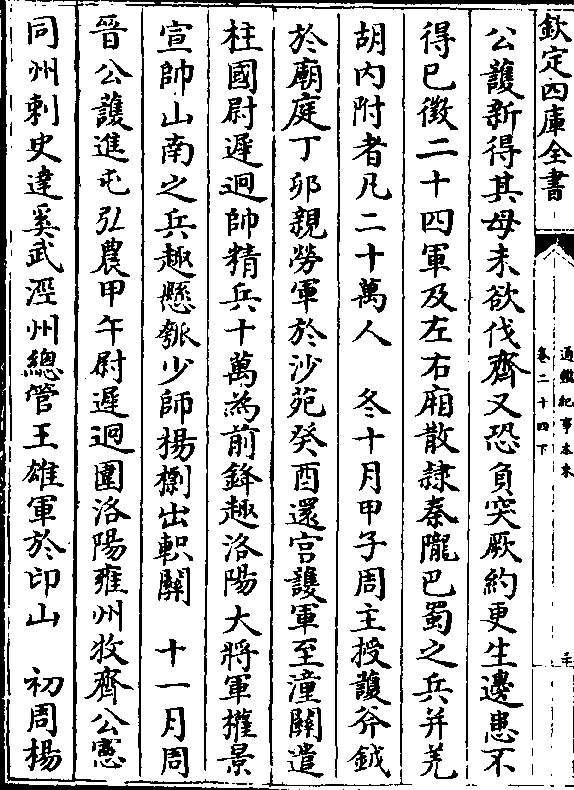 欽定四庫全書
通鑑紀事本末
卷二十四下
公護新得其母未欲伐齊又恐負突厥約更生邊患不
得已徵二十四軍及左右廂散隸秦隴巴蜀之兵并羌
胡内附者凡二十萬人　冬十月甲子周主授護斧鉞
於廟庭丁卯親勞軍於沙苑癸酉還宫護軍至潼關遣
柱國尉遲迥帥精兵十萬為前鋒趣洛陽大將軍權景
宣帥山南之兵趣懸瓠少師楊檦出軹關　十一月周
晉公護進屯弘農甲午尉遲迥圍洛陽雍州牧齊公憲
同州刺史達奚武涇州總管王雄軍於邙山　初周楊